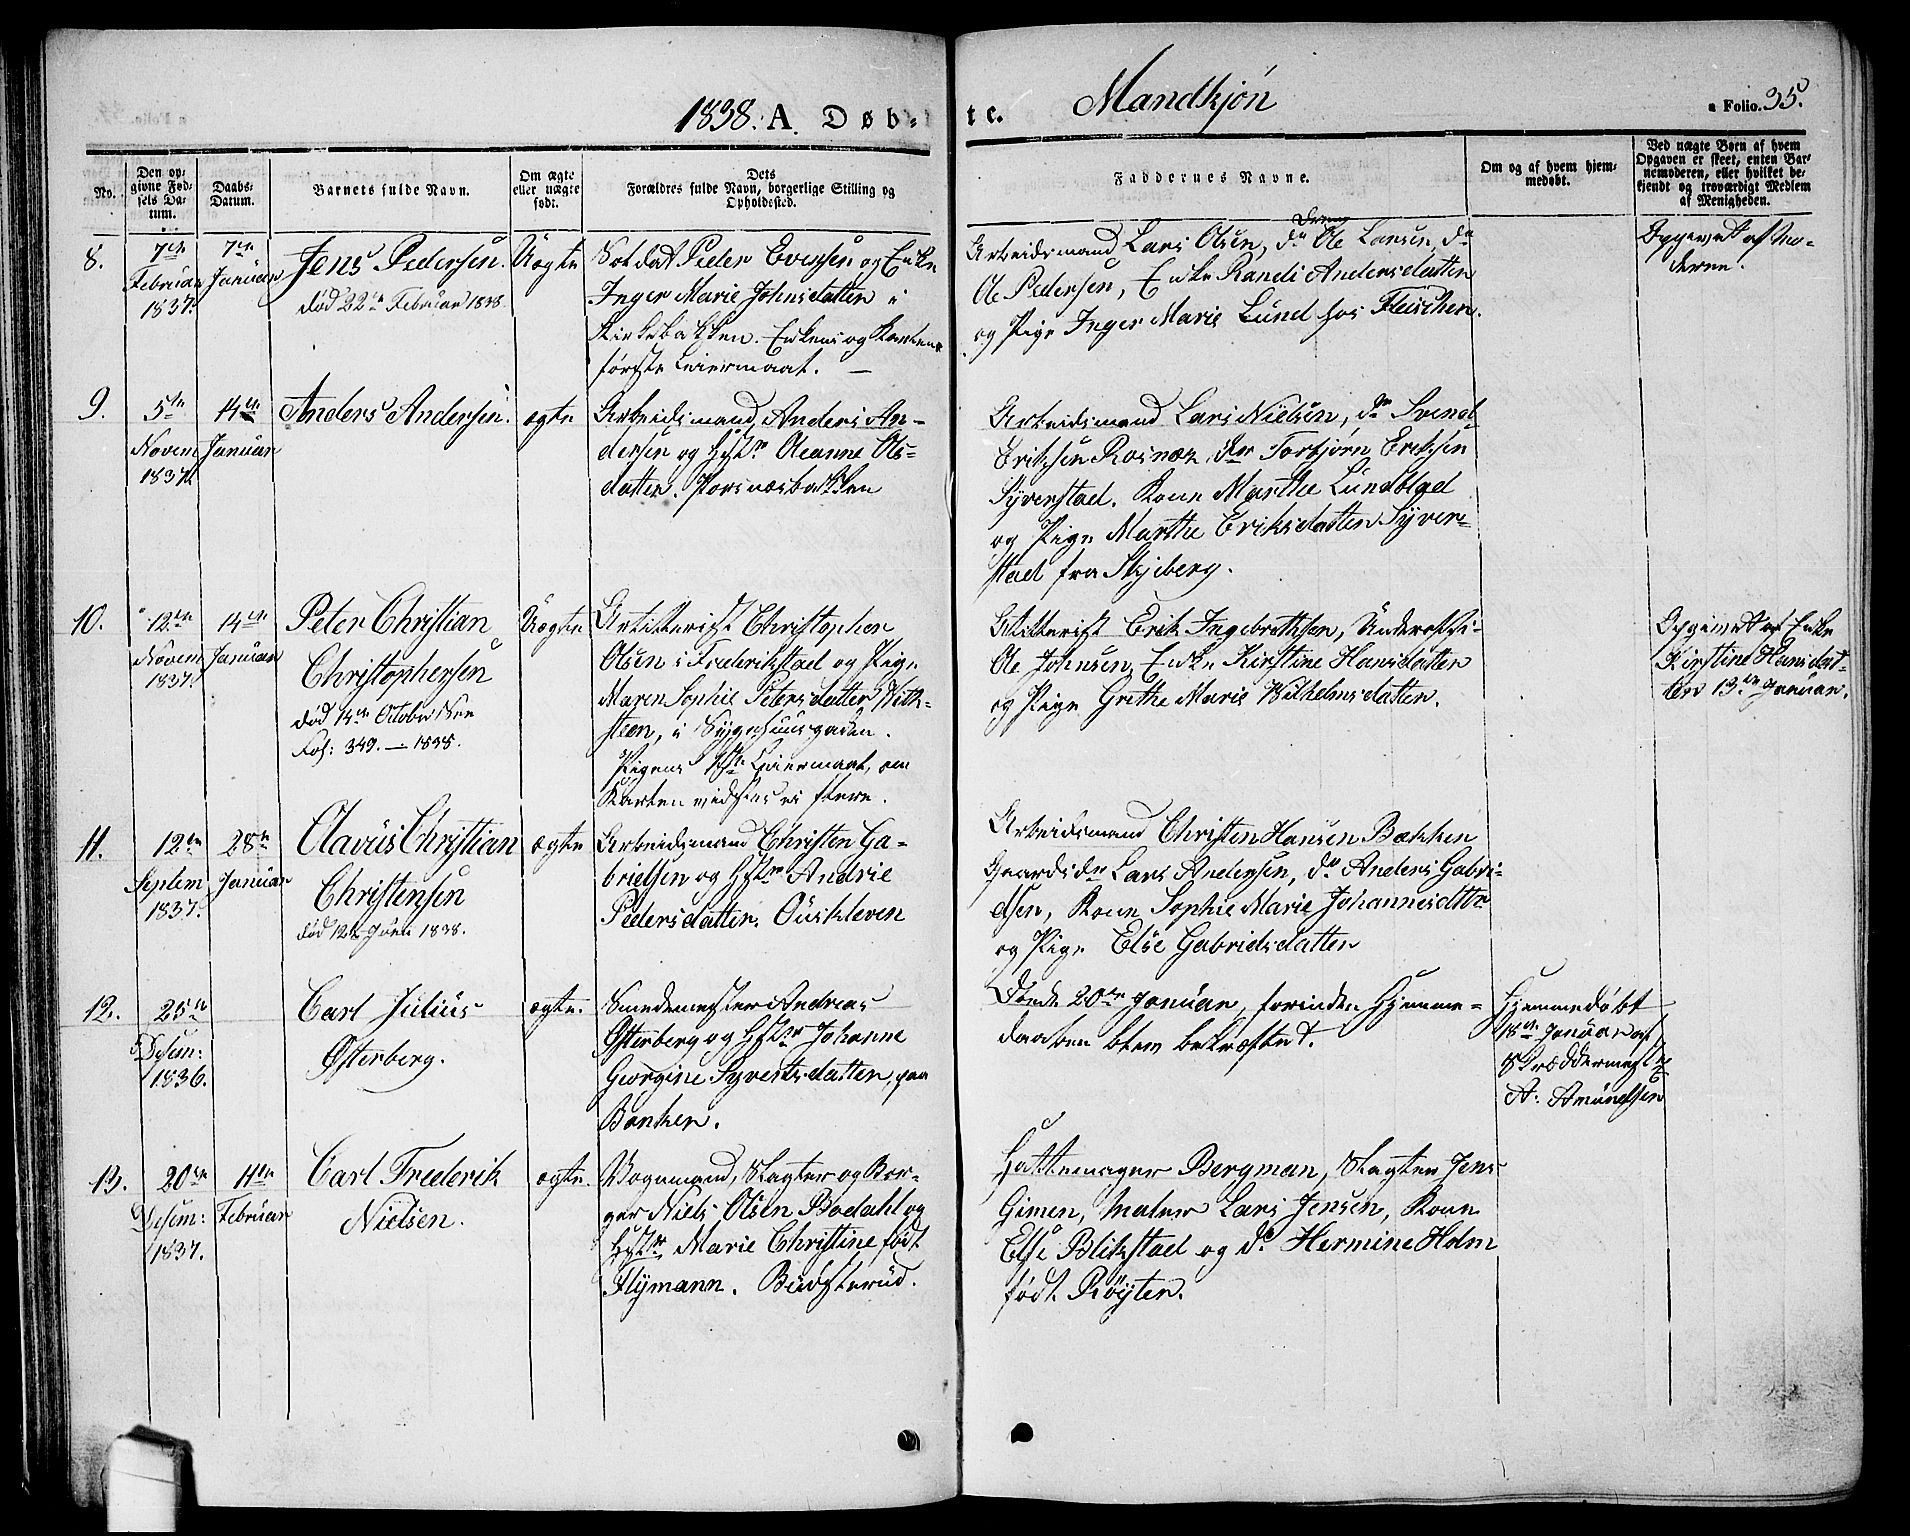 1838. A. Døb-
te. Mandkjøn
a Folio. 35.
No.
Den op-
givne Fød-
sels Da-
tum.
Daabs-
Datum.
Barnets fulde Navn.
Om ægte
eller uægte
født.
Dets
Forældres fulde Navn, borgerlige Stilling og
Opholdssted.
Faddernes Navne.
Om og af hvem hjem-
medøbt.
Ved uægte Børn af hvem
Opgaven er skeet, enten Bar-
nemoderen, eller hvilket be-
kjendt og troværdigt Medlem
af Menigheden.
8.
7de
Februar
1837.
7de
Januar
Jens Pedersen.
død 22de Februar 1838.
Uægte
Soldat Peder Evensen og Enke
Inger Marie Johnsdatter i
Kirkebakken. Enkens og Karlens
første Leiermaal. —
Dreng
Arbeidsmand Lars Olsen, do Ole Larsen, do
Ole Pedersen, Enke Randi Andersdatter
og Pige Inger Marie Lund hos Fleischer.
Opgivet af Mo-
deren.
9.
5te
Novem
1837.
14de
Januar
Anders Andersen.
ægte
Arbeidsmand Anders An-
dersen og Hstr. Oleanne Ols-
datter. Porsnæsbakken
Arbeidsmand Lars Nielsen, do Svend
Eriksen Rosnæs, do Torbjørn Eriksen
Syverstad. Kone Marthe Lundblad
og Pige Marthe Eriksdatter Syver-
stad fra Skjeberg.
10.
12te
Novem
1837.
14de
Januar
Peter Christian
Christophersen
død 14de October See
Fol: 349. — 1838.
Uægte
Artillerist Christopher
Olsen i Frederikstad og Pige
Maren Sophie Petersdatter Vitk-
steen, i Sygehuusgaden.
Pigens 1ste Leiermaal, om
Karlen vidstes ei flere.
Artillerist Erik Ingebrethsen, Underoffi-
Ole Johnsen, Enke Kirstine Hansdatter
og Pige Grethe Marie Wilhelmsdatter.
Opgivet af Enke
Kirstine Hansdat-
ter 13de Januar.
11.
12te
Septem
1837.
28de
Januar
Olavus Christian
Christensen
død 12te Juni 1838.
ægte
Arbeidsmand Christen Ga-
brielsen og Hstr Andrie
Pedersdatter. Ouskleven
Arbeidsmand Christen Hansen Bakken
Gaardsdr Lars Andersen, do Anders Gabri-
elsen, Kone Sophie Marie Johannesdttr
og Pige Else Gabrielsdatter
12.
25de
Desem:
1836.
Carl Julius
Østerberg.
ægte.
Smedemester Andreas
Østerberg og Hstr Johanne
Georgine Syverts datter, paa
Banken.
Døde 20de Januar, forinden Hjemme-
daaben blev bekræftet.
Hjemmedøbt
18de Januar af
Skræddermest
A: Amundsen
13.
20de
Desem:
1837.
11te
Februar
Carl Frederik
Nielsen.
ægte.
Vognmand, Slagter og Bor-
ger Niels Olsen Bodahl og
Hstr Marie Christine født
Flymann. Budsterud.
Hattemager Bergman, Slagter Jens
Gimen, Maler Lars Jensen, Kone
Else Blikstad og do. Hermine Holm
født Röyter.